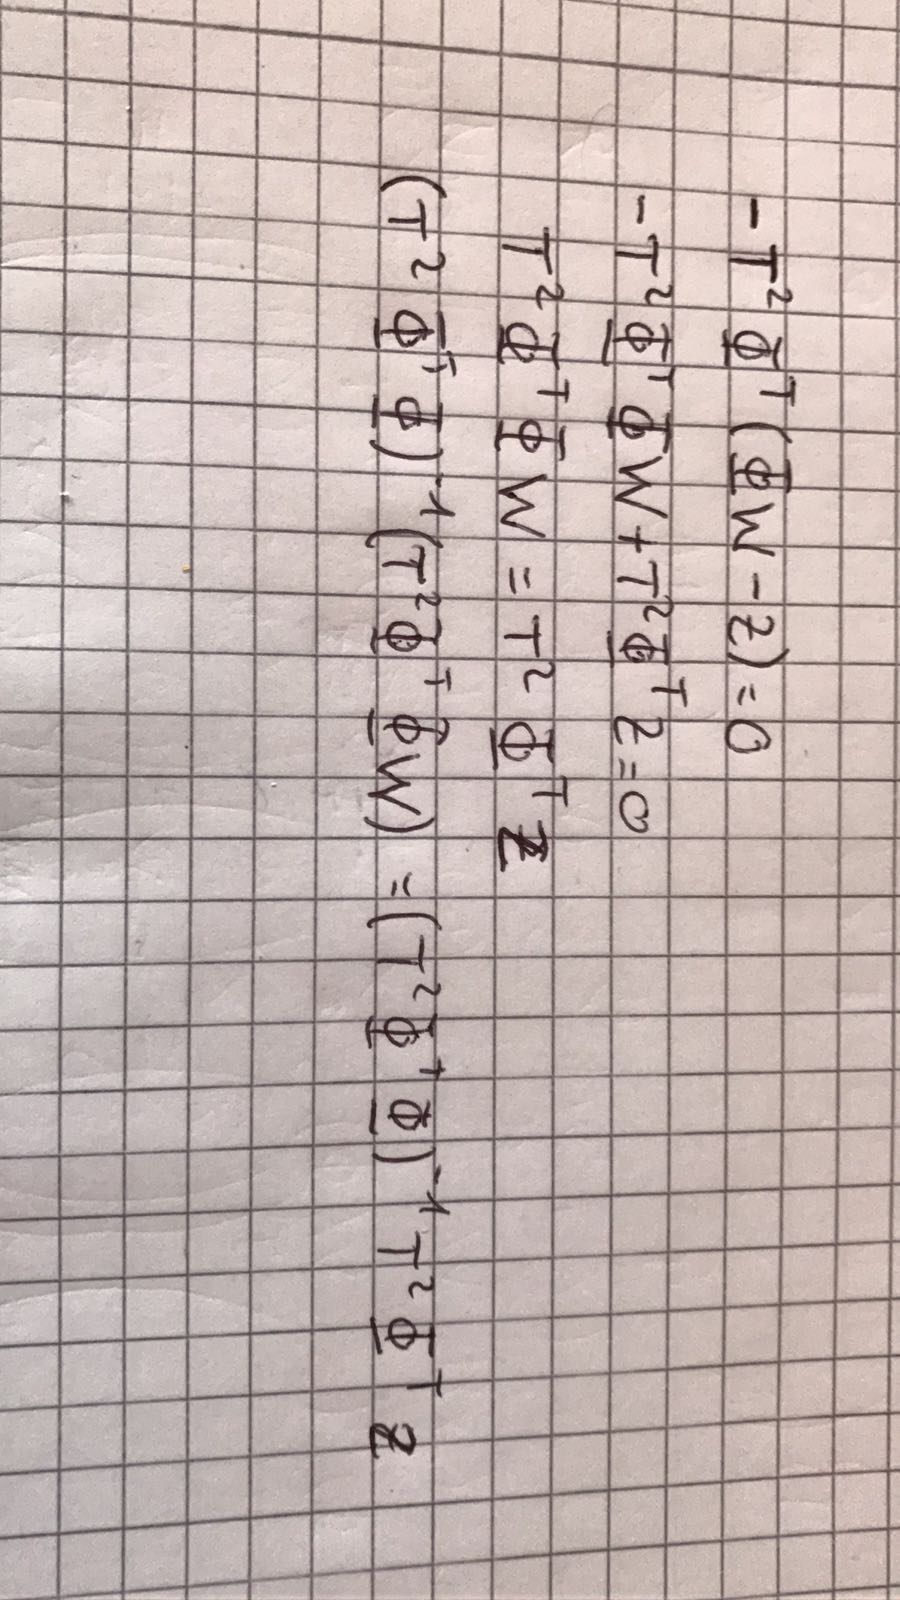 -T² Φᵀ (ΦW - Z) = 0
-T² Φᵀ ΦW + T² Φᵀ Z = 0
T² Φᵀ ΦW = T² Φᵀ Z
(T² Φᵀ Φ)⁻¹ (T² Φᵀ ΦW) = (T² Φᵀ Φ)⁻¹ T² Φᵀ Z